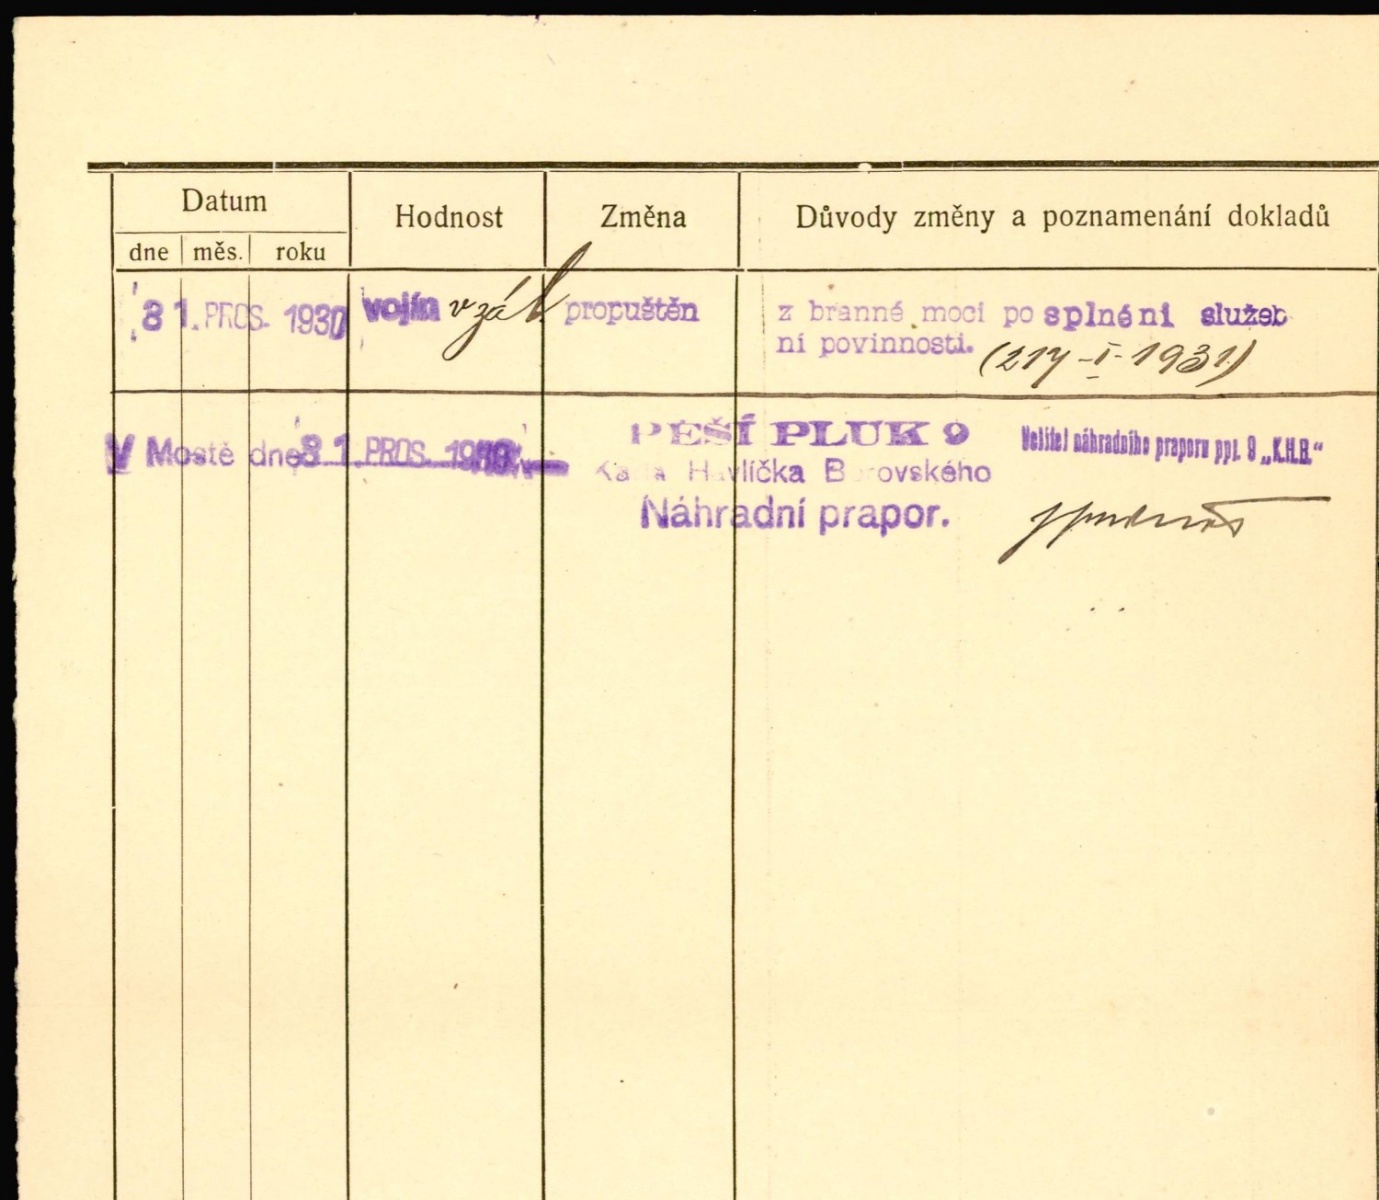 Datum
Hodnost
Změna
Důvody změny a poznamenání dokladů
dne měs. roku
31. PROS. 1930 vojín v zál. propuštěn z branné moci po splnéni služeb
ní povinnosti. (217-I-1931)
V Mostě dne 31. PROS. 1930
PĚŠÍ PLUK 9
Karla Havlíčka Borovského
Náhradní prapor.
Velitel náhradního praporu ppl. 9 „K.H.B.“